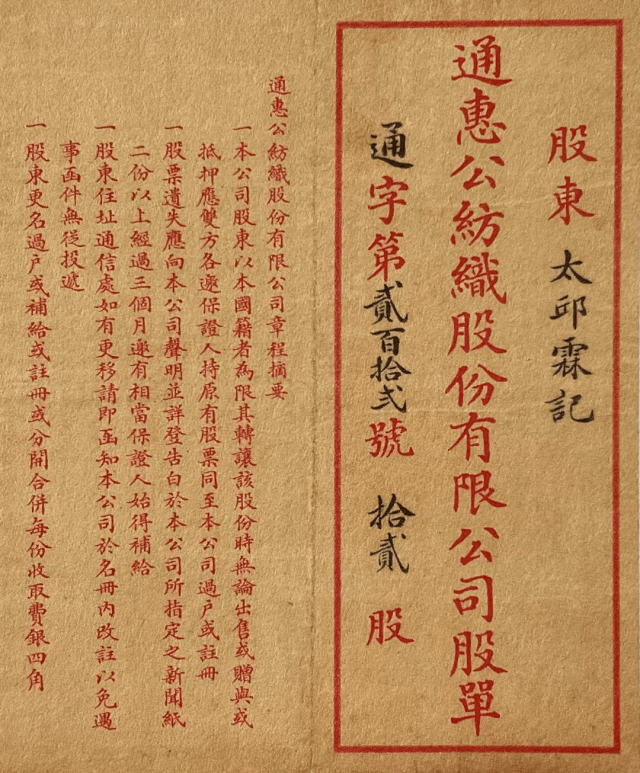 股東 太邱霖記
通惠公紡織股份有限公司股單
通字第貳百拾弍號 拾貳 股
通惠公紡織股份有限公司章程摘要
一本公司股東以本國籍者為限其轉讓該股份時無論出售或贈與或
抵押應雙方各邀保證人持原有股票同至本公司過戶或註冊
一股票遺失應向本公司聲明並詳登告白於本公司所指定之新聞紙
二份以上經過三個月邀有相當保證人始得補給
一股東住址通信處如有更移請即函知本公司於名冊內改註以免遇
事函件無從投遞
一股東更名過戶或補給或註冊或分開合併每份收取費銀四角